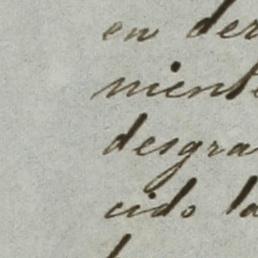 en der
niente
desgra
cido la